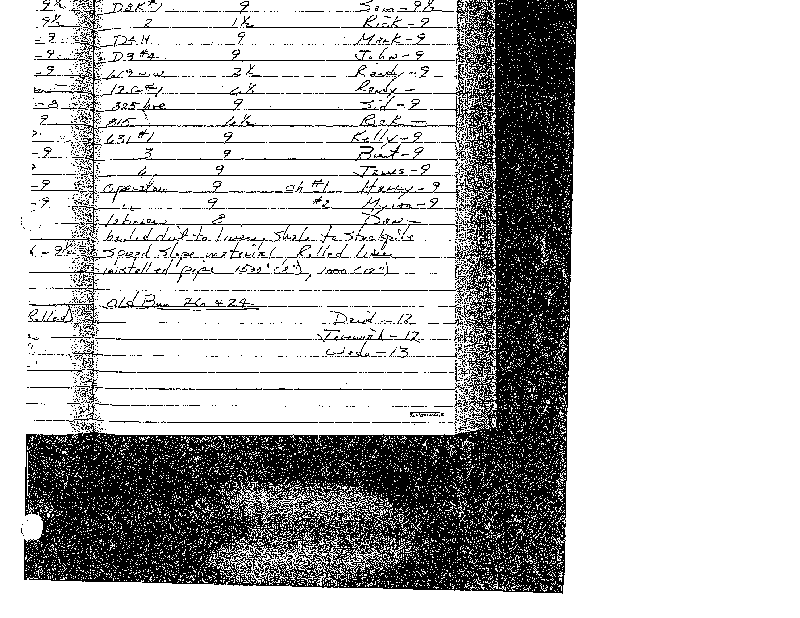 9½ D8K #1 9 Sam - 9½
9½ 2 1½ Rick - 9
- 9 D4H 9 Mark - 9
- 9 D9 #4 9 John - 9
- 9 619 w.w 2½ Randy - 9
12 G #1 6½ Randy -
- 8 325 hoe 9 Sid - 9
9 815 6½ Rick -
631 #1 9 Kelly - 9
- 9 3 9 Burt - 9
4 9 James - 9
- 9 operator 9 oh #1 Harvey - 9
- 9 " 9 #2 Myron - 9
laborer 8 Dan -
hauled dirt to liners, Shale to Stockpile
Spread Slope material. Rolled line
installed pipe 1500' (8"), 1000 (12")
Old Bun 26 + 24
Rolled) David - 12
- 12
Wade - 13